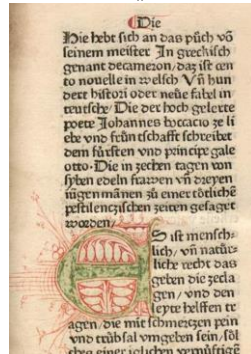 Die
Hie hebt sich an das püch vō
seinem meister In greckisch
genant decameron/ daz ist cen
to nouelle in welsch Vn̄ hun
dert histori oder neüe fabel in
teutsche/ Die der hoch gelerte
poete Johannes boccacio ze li
ebe vnd früntschafft schreibet
dem fürsten vnd principe gale
otto· Die in zechen tagen von
syben edeln frawen vn̄ dreyen
iungen mānen zů einer tötliche
pestilenczischen zeiten gesaget
worden/
ES ist mensch-
lich/ vn̄ natür-
liche recht das
geben die zecla
gen/ vnd den
leyte helffen tr
agen/ die mit schmerczen pein
vnd trübsal vmgeben sein/ söl